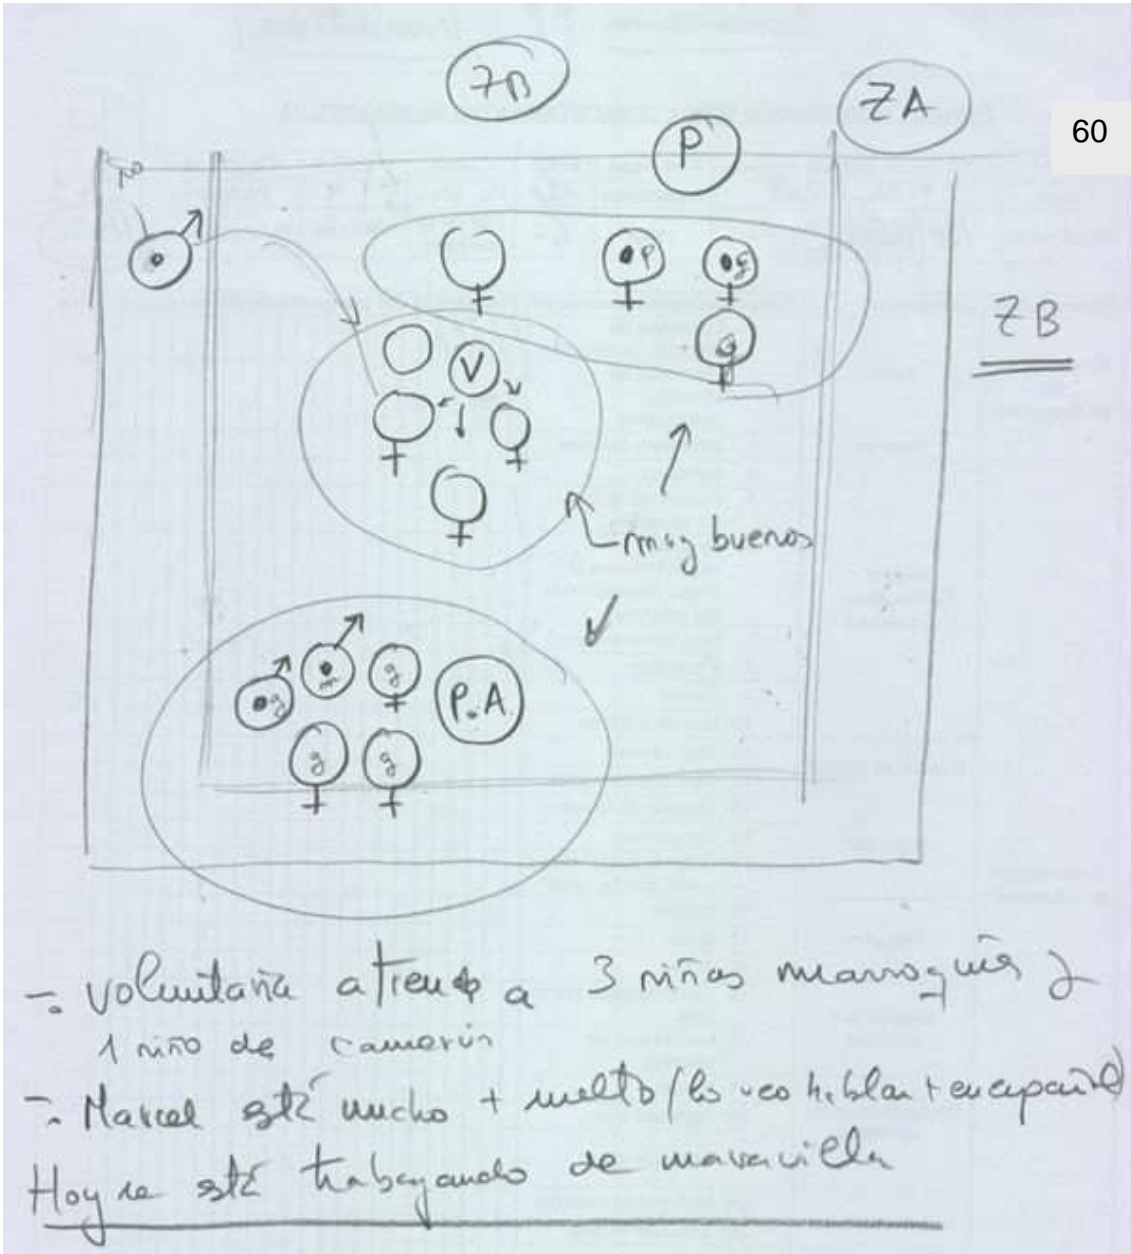 ZA
P
60
ZB
V
P
g
G
muy buenos
g
P.A.
g
g
g
- Voluntaria atiende a 3 niñas marroquís y
1 niño de camerún
- Marcel está mucho + suelto (los veo hablar + en español)
Hoy se está trabajando de maravilla